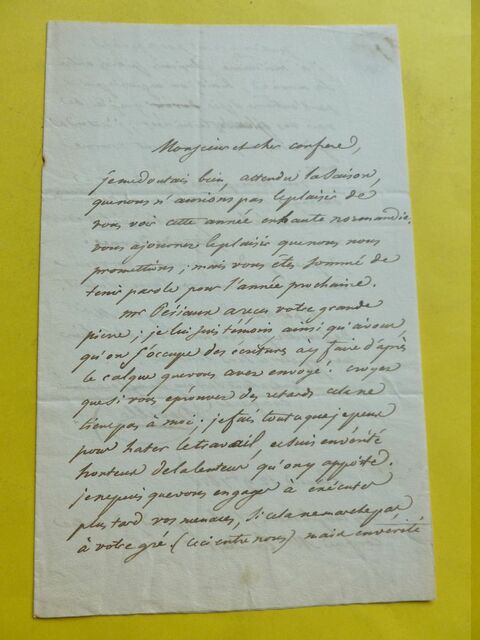 Monsieur et cher confrere,
je me doutais bien, attendu la saison,
que nous n'aurions pas le plaisir de
vous voir cette année en haute normandie.
vous ajournez le plaisir que nous nous
promettions ; mais vous êtes sommé de
tenir parole pour l'année prochaine.
mr Periaux a reçu votre grande
pierre ; je lui suis témoin ainsi qu'à vous,
qu'on s'occupe des écritures à y faire d'après
le calque que vous avez envoyé. croyez
que si vous éprouvez des retards cela ne
tient pas à moi. je fais tout ce que je peux
pour hater le travail, et suis en vérité
honteux de la lenteur qu'on y apporte.
je ne puis que vous engager à exécuter
plus tard vos menaces, si cela ne marche pas
à votre gré (ceci entre nous) mais en vérité